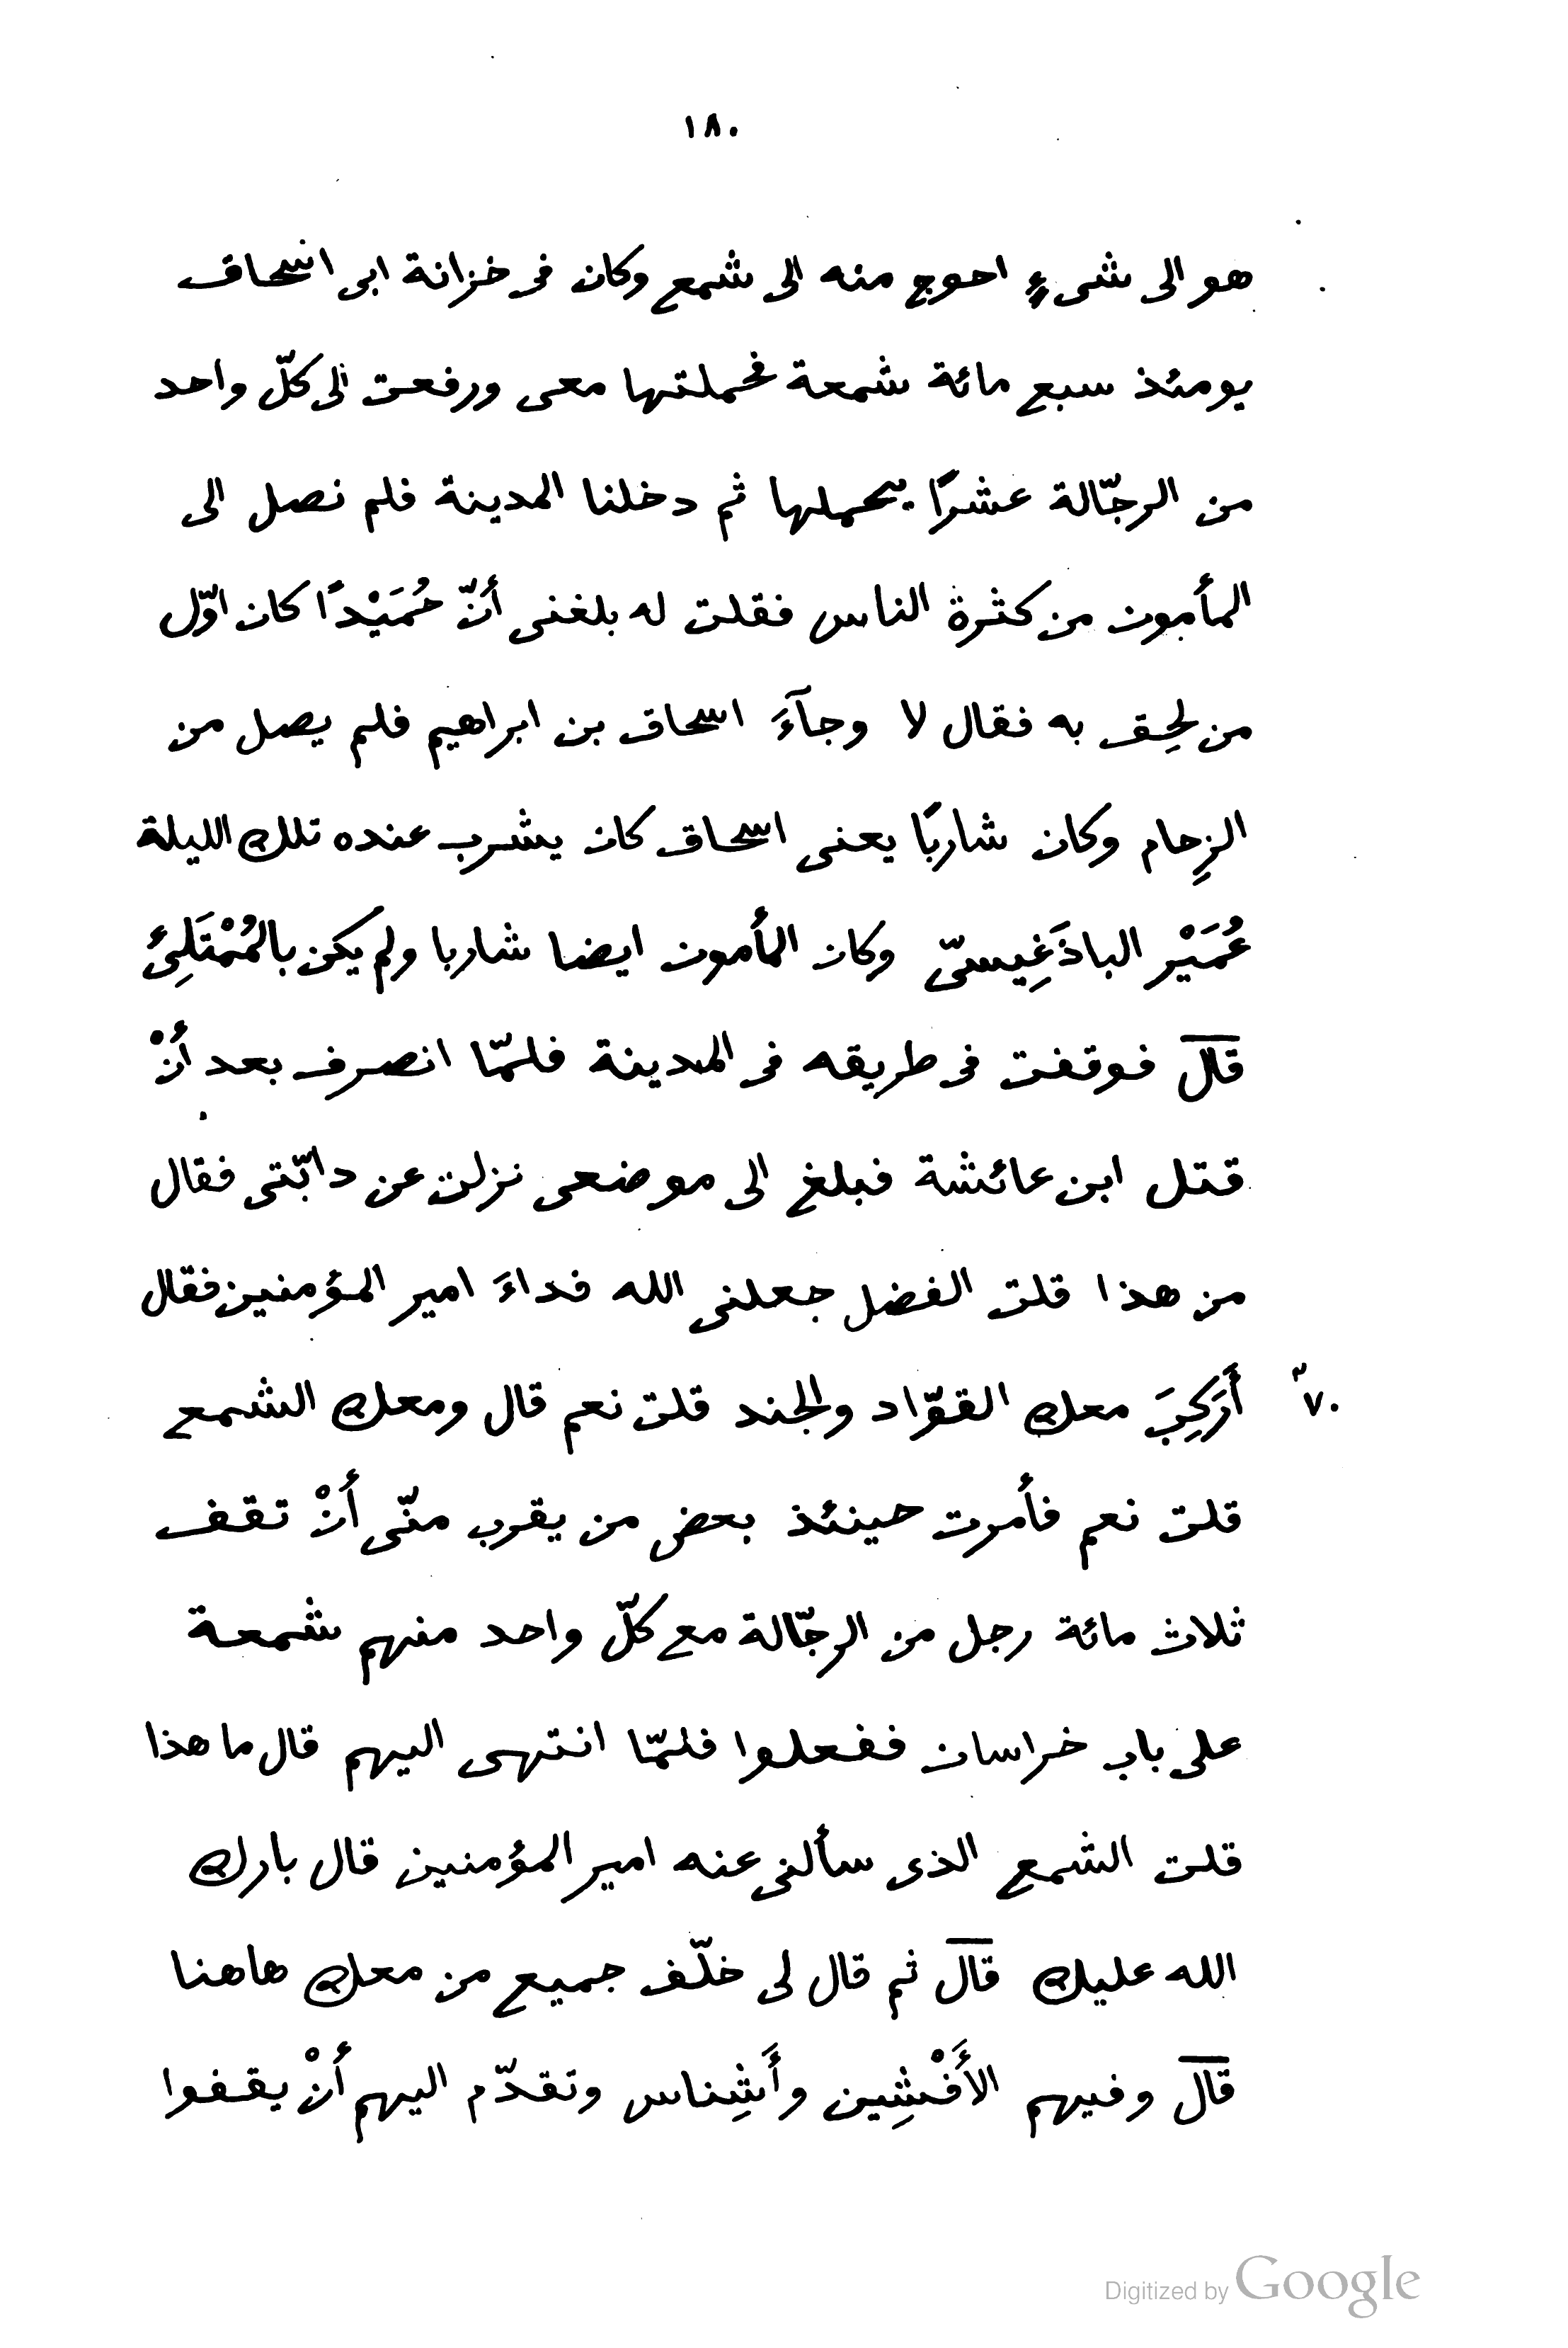 ١٨٠
هو الى شىءٍ احوج منه الى شمع وكان فى خزانة ابى اسحاق
يومئذ سبع مائة شمعة فحملتها معى ورفعت الى كلّ واحد
من الرجّالة عشرًا يحملها ثم دخلنا المدينة فلم نصل الى
المأمون من كثرة الناس فقلت له بلغنى أنّ حُمَيْدًا كان اوّل
من لحِق به فقال لا وجآءَ اسحاق بن ابراهيم فلم يصل من
الزِحام وكان شاربًا يعنى اسحاق كان يشرب عنده تلك الليلة
عُمَيْر الباذَغِيسىّ وكان المأمون ايضا شاربا ولم يكن بالمُمْتَلِئ
قال فوقفت فى طريقه فى المدينة فلمّا انصرف بعد أنْ
قتل ابن عائشة فبلغ الى موضعى نزلت عن دابّتى فقال
من هذا قلت الفضل جعلنى الله فداءَ امير المؤمنين فقال
أَرَكِبَ معك القوّاد والجند قلت نعم قال ومعك الشمع
٧٠
قلت نعم فأمرت حينئذ بعض من يقرب منّى أنْ تقف
ثلاث مائة رجل من الرجّالة مع كلّ واحد منهم شمعة
على باب خراسان ففعلوا فلمّا انتهى اليهم قال ما هذا
قلت الشمع الذى سألنى عنه امير المؤمنين قال بارك
الله عليك قال ثم قال لى خلّف جميع من معك هاهنا
قال وفيهم الأَفْشِين وأَشِناس وتقدّم اليهم أنْ يقفوا
Digitized by Google